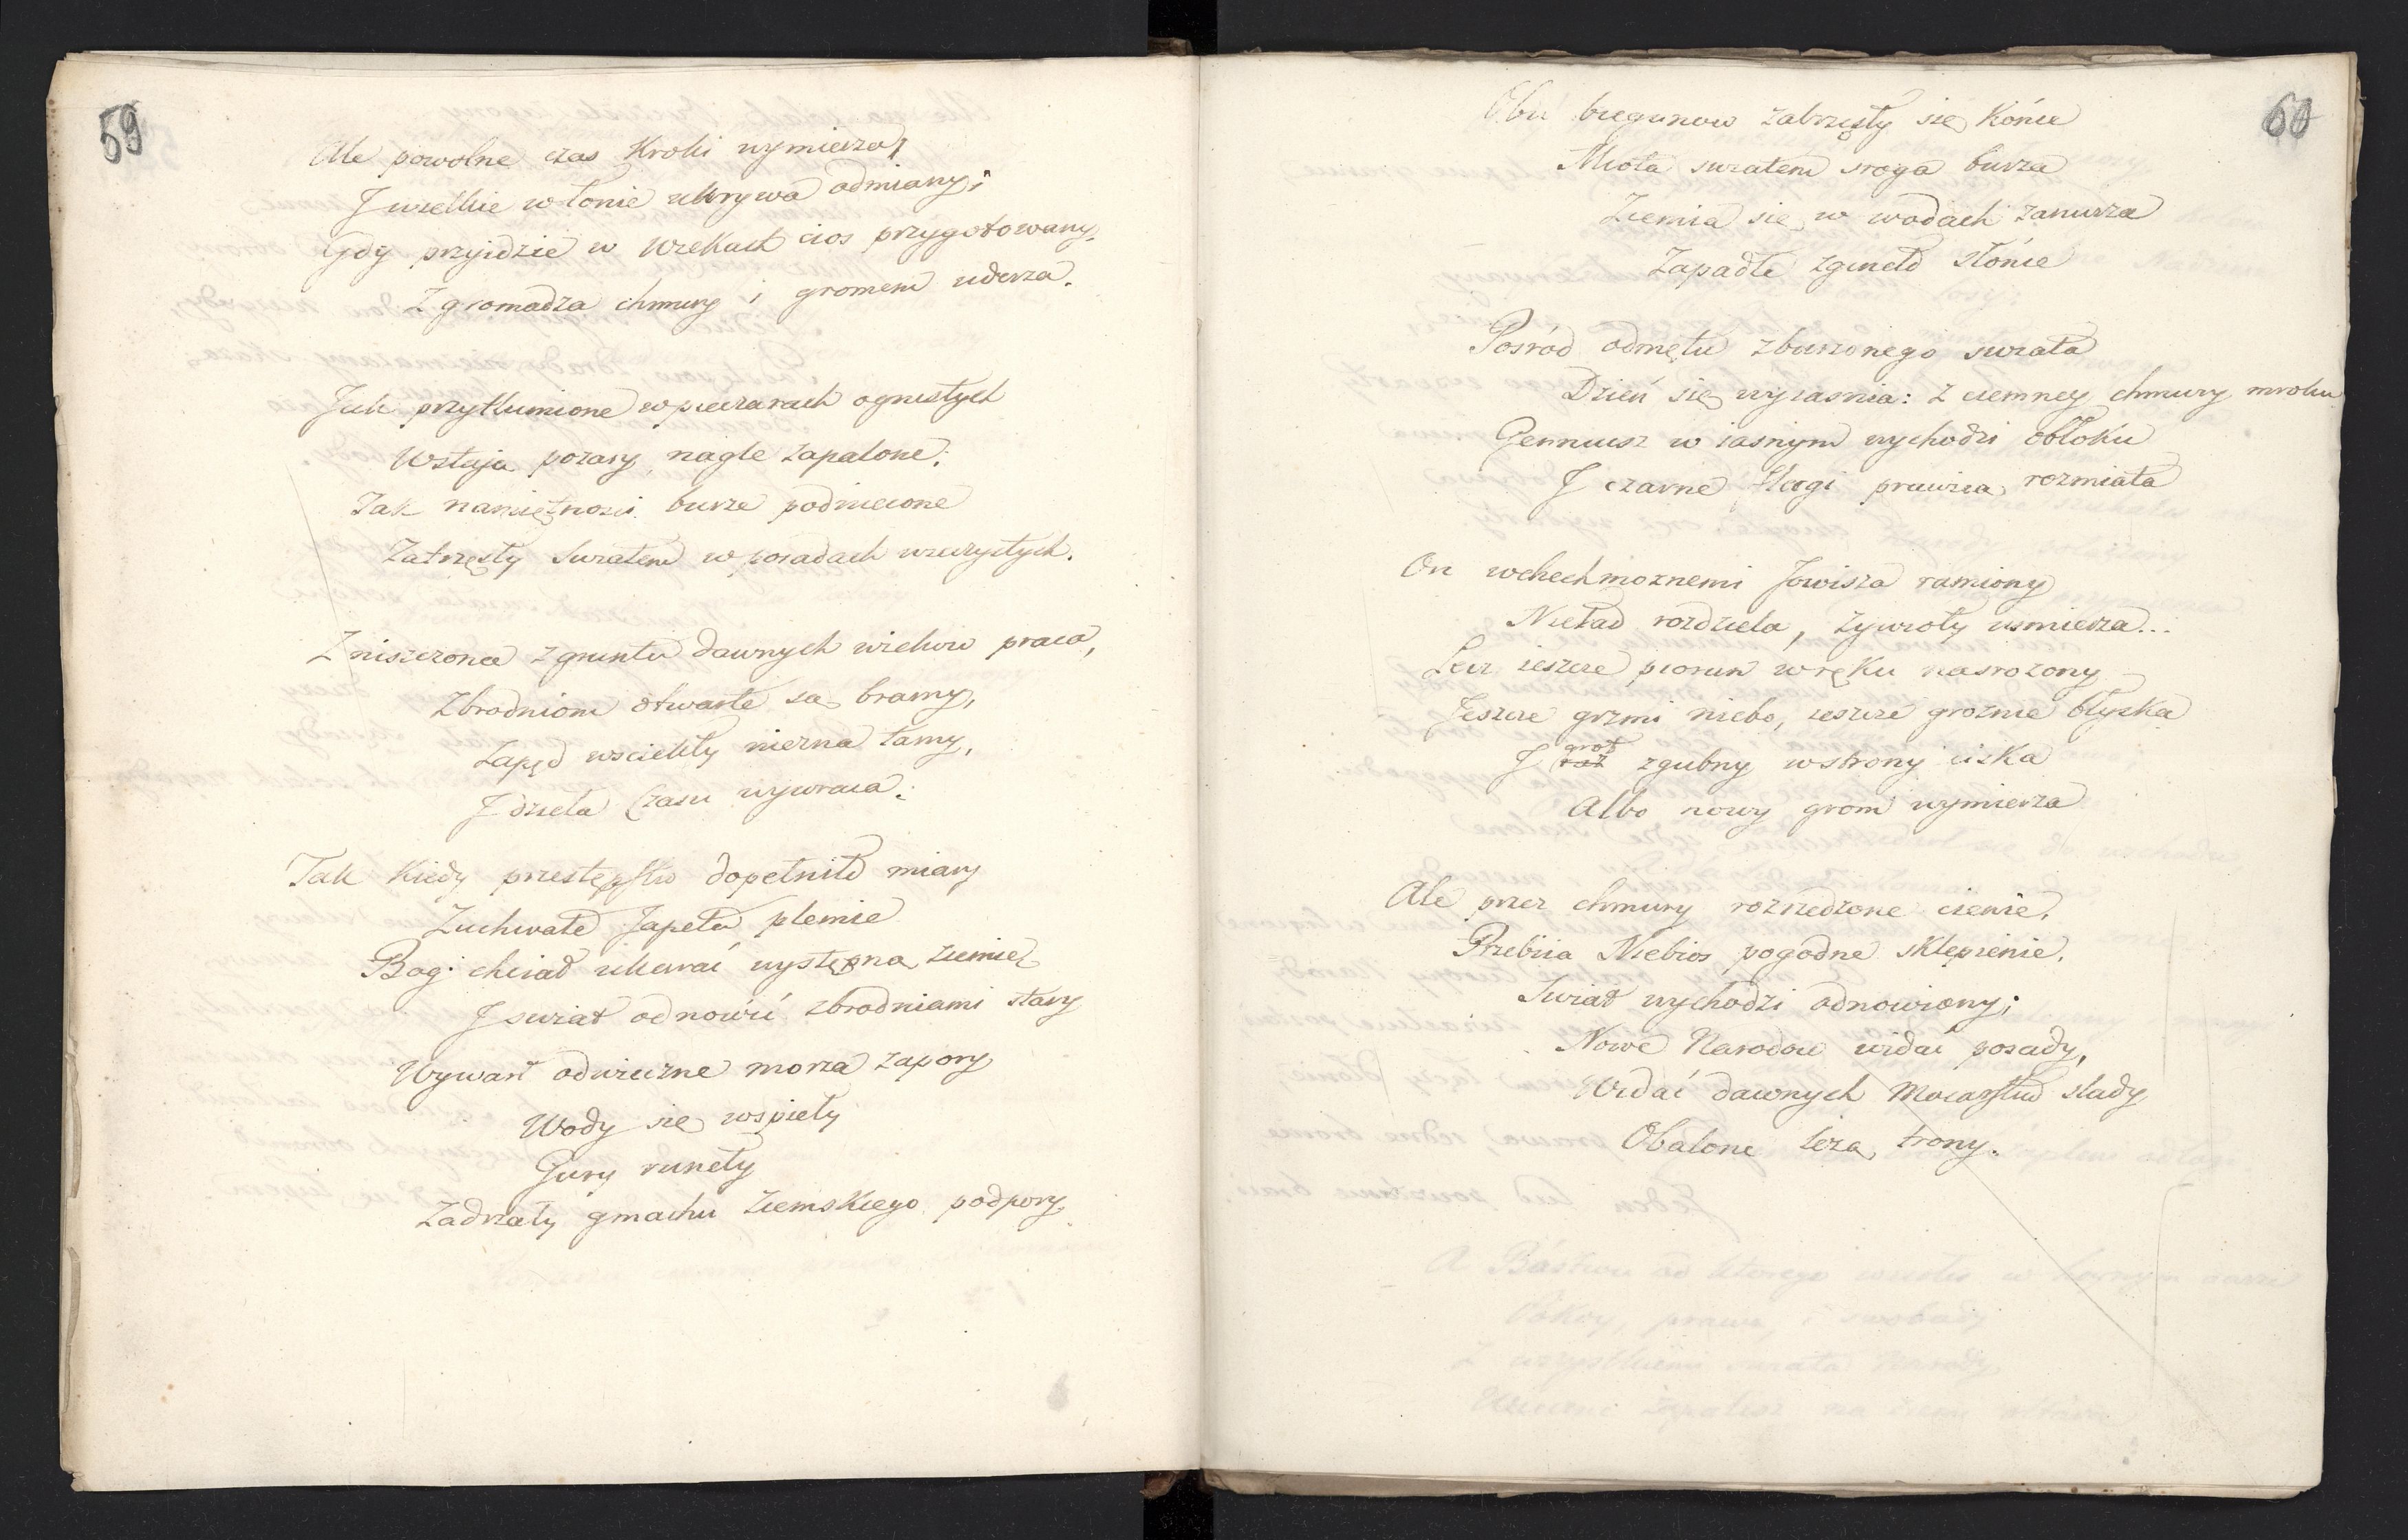 59
Ale powolne czas Kroki wymierza,
I wielkie w łonie ukrywa odmiany;
Gdy przyidzie w Wiekach cios przygotowany,
Zgromadza chmury i gromem uderza.
Jak przytłumione w pieczarach ognistych
Wstają pożary nagle zapalone:
Tak namiętnosci burze podniecone
Zatrzęsły Swiatem w posadach wieczystych.
Zniszczona z gruntu dawnych wieków praca,
Zbrodniom otwarte są bramy,
Zapęd wsciekły niezna tamy,
I dzieła Czasu wywraca.
Tak kiedy przestępstw dopełniło miary
Zuchwałe Japeta plemie
Bog chciał ukarać występną ziemię
I swiat odnowić zbrodniami stary
Wywarł odwieczne morza zapory
Wody się wspieły
Gury runeły
Zadrżały gmachu ziemskiego podpory.
60
Obu biegunow zatrzęsły się Końce
Miota swiatem sroga burza
Ziemia się w wodach zanurza
Zapadłe zgineło Słónce
Pośród odmętu zburzonego swiata
Dzień się wyiasnia: z ciemney chmury mroku
Genniusz w iasnym wychodzi obłoku
I czarne prawicą rozmiata
On wchechmoznemi Jowisza ramiony
Nieład rozdziela, żywioły usmierza...
Lecz ieszcze piorun w ręku nasrożony
Jeszcze grzmi niebo, ieszcze groźnie błyska
I grot zgubny w strony ciska
Albo nowy grom wymierza
Ale przez chmury rozrzedzone cienie,
Przebiia Niebios pogodne sklepienie.
Swiat wychodzi odnowiony;
Nowe Narodow widać posady,
Widać dawnych Mocarstw slady
Obalone leżą trony.